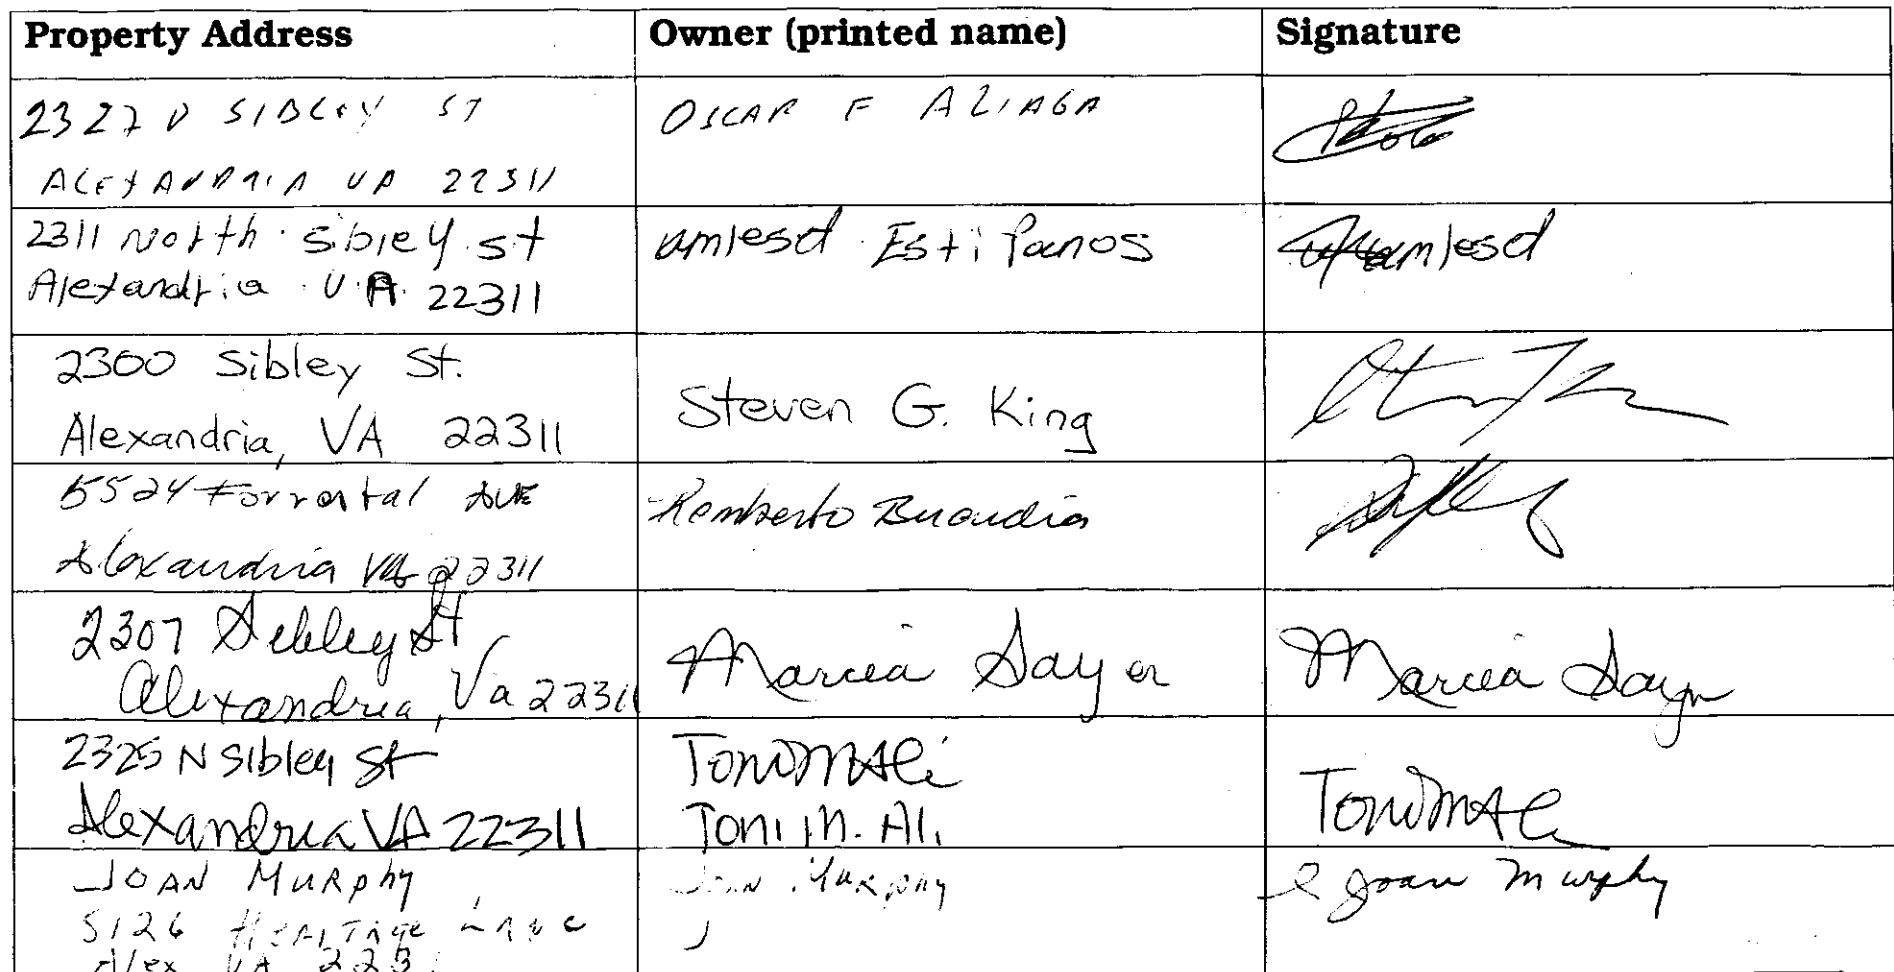 Property Address Owner (printed name) Signature
2327 N SIBLEY ST
ALEXANDRIA VA 22311
OSCAR F ALIAGA
2311 North Sibley st
Alexandria V.A. 22311
amlesd Estifanos
amlesd
2300 Sibley St.
Alexandria, VA 22311
Steven G. King
5524 Forrestal AVE
Alexandria VA 22311
Remberto
2307 Sibley St
Alexandria, Va 22311
Marcia Sayer
Marcia Sayer
2325 N Sibley St
Alexandria VA 22311
Toni M Ali
Toni M. Ali
Toni M Ali
JOAN MURphy
5126 HERITAGE LANE
Alex VA 223
JOAN MURphy
Joan Murphy